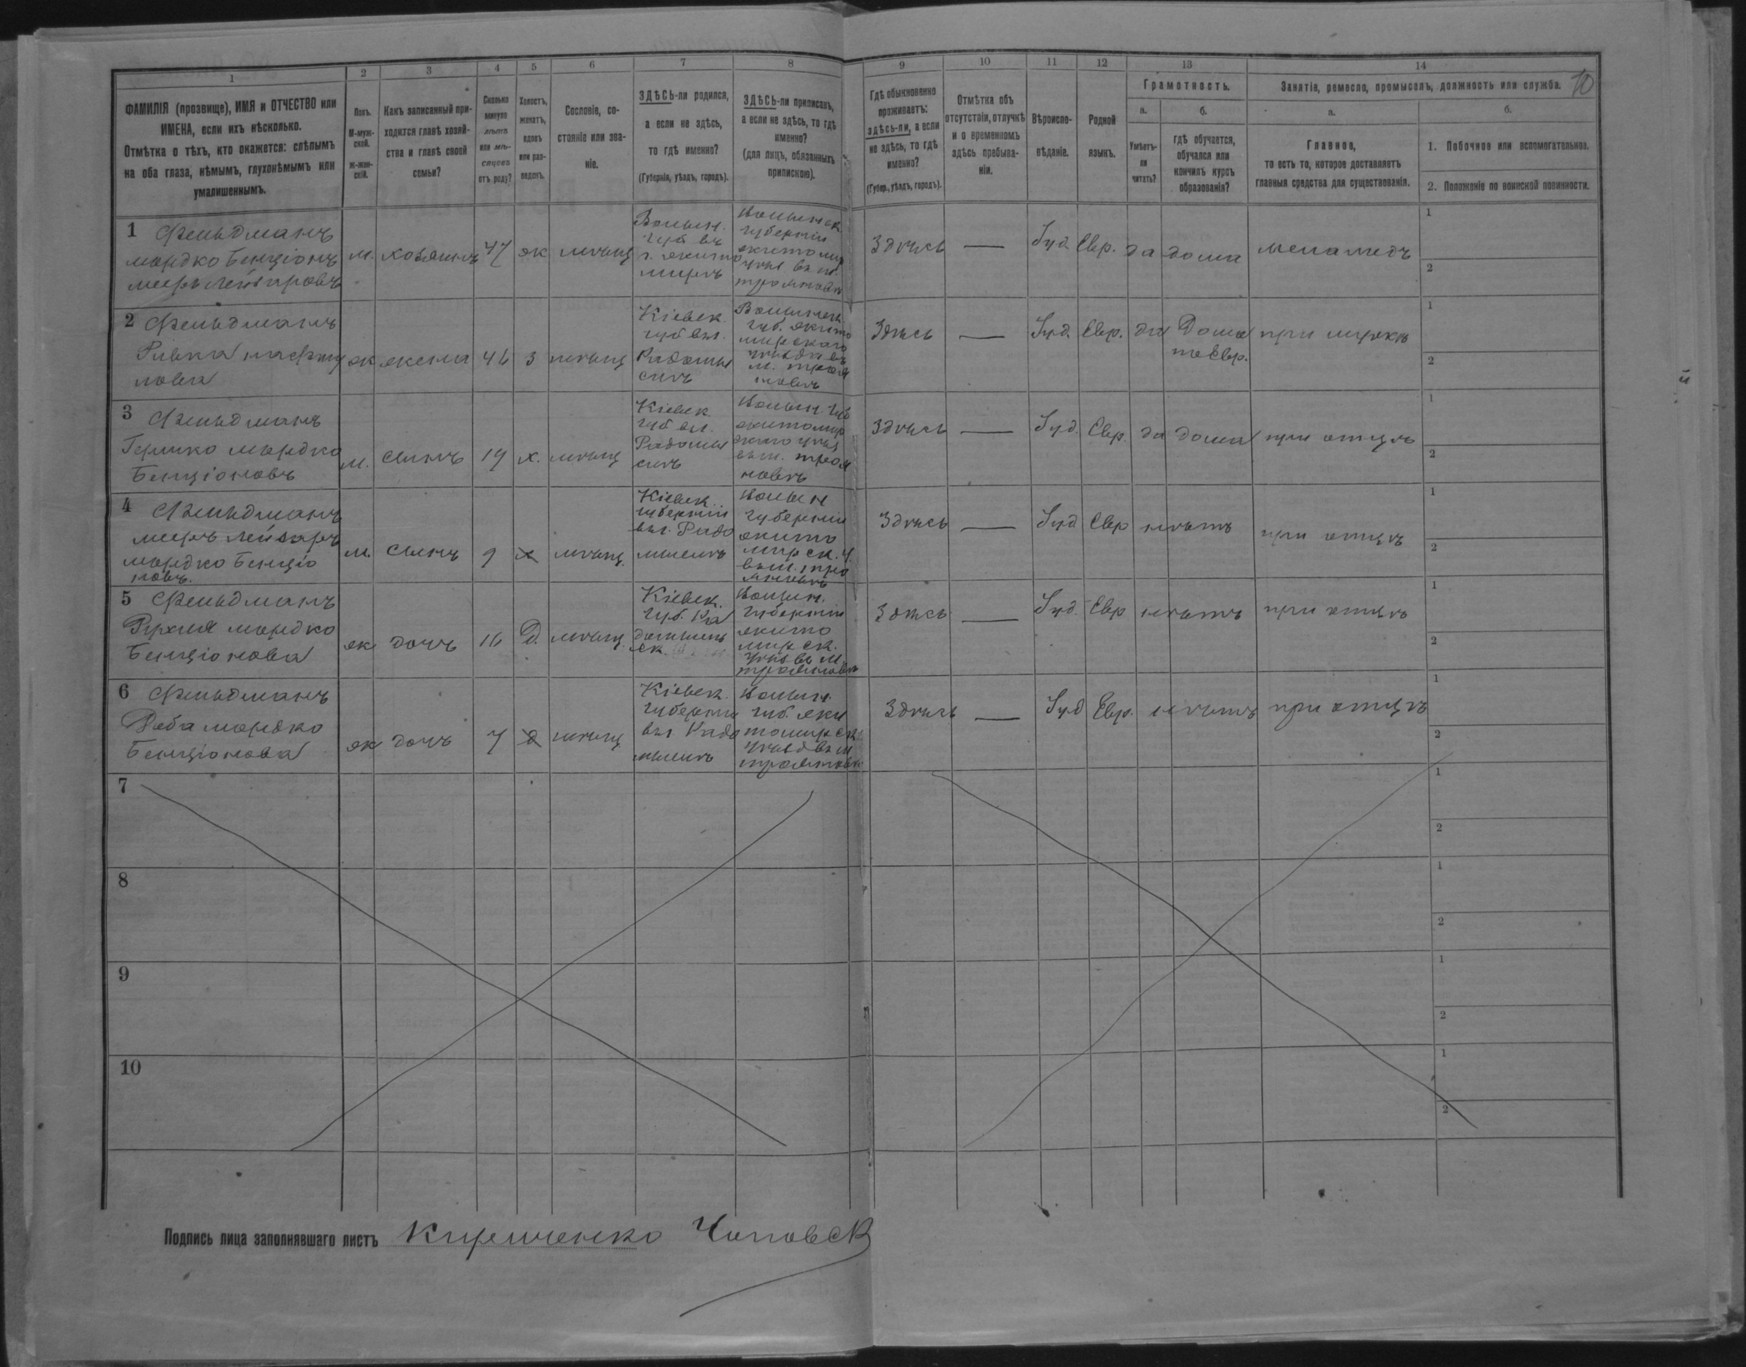 10
1 2 3 4 5 6 7 8 9 10 11 12 13 14
ФАМИЛІЯ (прозвище), ИМЯ и ОТЧЕСТВО или
ИМЕНА, если ихъ нѣсколько.
Отмѣтка о тѣхъ, кто окажется: слѣпымъ
на оба глаза, нѣмымъ, глухонѣмымъ или
умалишеннымъ.
Полъ.
М-муж-
ской.
Ж-жен-
скій.
Какъ записанный при-
ходится главѣ хозяй-
ства и главѣ своей
семьи?
Сколько
минуло
лѣтъ
или мѣ-
сяцевъ
отъ роду?
Холостъ,
женатъ,
вдовъ
или раз-
веденъ.
Сословіе, со-
стояніе или зва-
ніе.
ЗДѢСЬ-ли родился,
а если не здѣсь,
то гдѣ именно?
(Губернія, уѣздъ, городъ).
ЗДѢСЬ-ли приписанъ,
а если не здѣсь, то гдѣ
именно?
(для лицъ, обязанныхъ
припискою).
Гдѣ обыкновенно
проживаетъ:
здѣсь-ли, а если
не здѣсь, то гдѣ
именно?
(Губер., уѣздъ, городъ).
Отмѣтка объ
отсутствіи, отлучкѣ
и о временномъ
здѣсь пребыва-
ніи.
Вѣроиспо-
вѣданіе.
Родной
языкъ.
Грамотность.
а.
Умѣетъ-
ли
читать?
б.
гдѣ обучается,
обучался или
кончилъ курсъ
образованія?
Занятіе, ремесло, промыселъ, должность или служба.
а.
Главное,
то есть то, которое доставляетъ
главныя средства для существованія.
б.
1. Побочное или вспомогательное.
2. Положеніе по воинской повинности.
1 Фельдманъ
мордко Бенціонъ
м. хозяинъ 47 ж мѣщ
Волын.
губ. въ
г. жито
мирѣ
Волынск
губерніи
житомир
Здѣсь — Іуд. Евр. да дома меламедъ
1
2
2 Фельдманъ
Ривка
ж жена 46 з мѣщ
Кіевск
губ въ
Радомы
слѣ
Волынск
губ. жито
мирскаго
уѣзда въ
м. троя
новѣ
Здѣсь — Іуд. Евр. да Дома
по Евр.
при мужѣ
1
2
3 Фельдманъ
Гершко мордко
Бенціоновъ
м. сынъ 19 х. мѣщ
Кіевск
губ въ
Радомы
слѣ
Волын губ
житомир
новѣ
Здѣсь — Іуд. Евр. да дома при отцѣ
1
2
4 Фельдманъ
меиръ Лейзеръ
мордко Бенціо
новъ.
м. сынъ 9 х мѣщ.
Кіевск.
губерніи
въ Радо
мыслѣ
Волын
губерніи
жито
мирск. у.
Здѣсь — Іуд Евр нѣтъ при отцѣ
1
2
5 Фельдманъ
Рухля мордко
Бенціонова
ж дочь 16 д. мѣщ
Кіевск.
губ. Ра
Волын.
губерніи
жито
мирск.
Здѣсь — Іуд. Евр нѣтъ при отцѣ
1
2
6 Фельдманъ
Доба мордко
Бенціонова
ж дочь 7 д мѣщ
Кіевск.
губерніи
въ Радо
мыслѣ
Волын.
губ. жи
томирск
Здѣсь — Іуд Евр. нѣтъ при отцѣ
1
2
7
1
2
8
1
2
9
1
2
10
1
2
Подпись лица заполнявшаго листъ